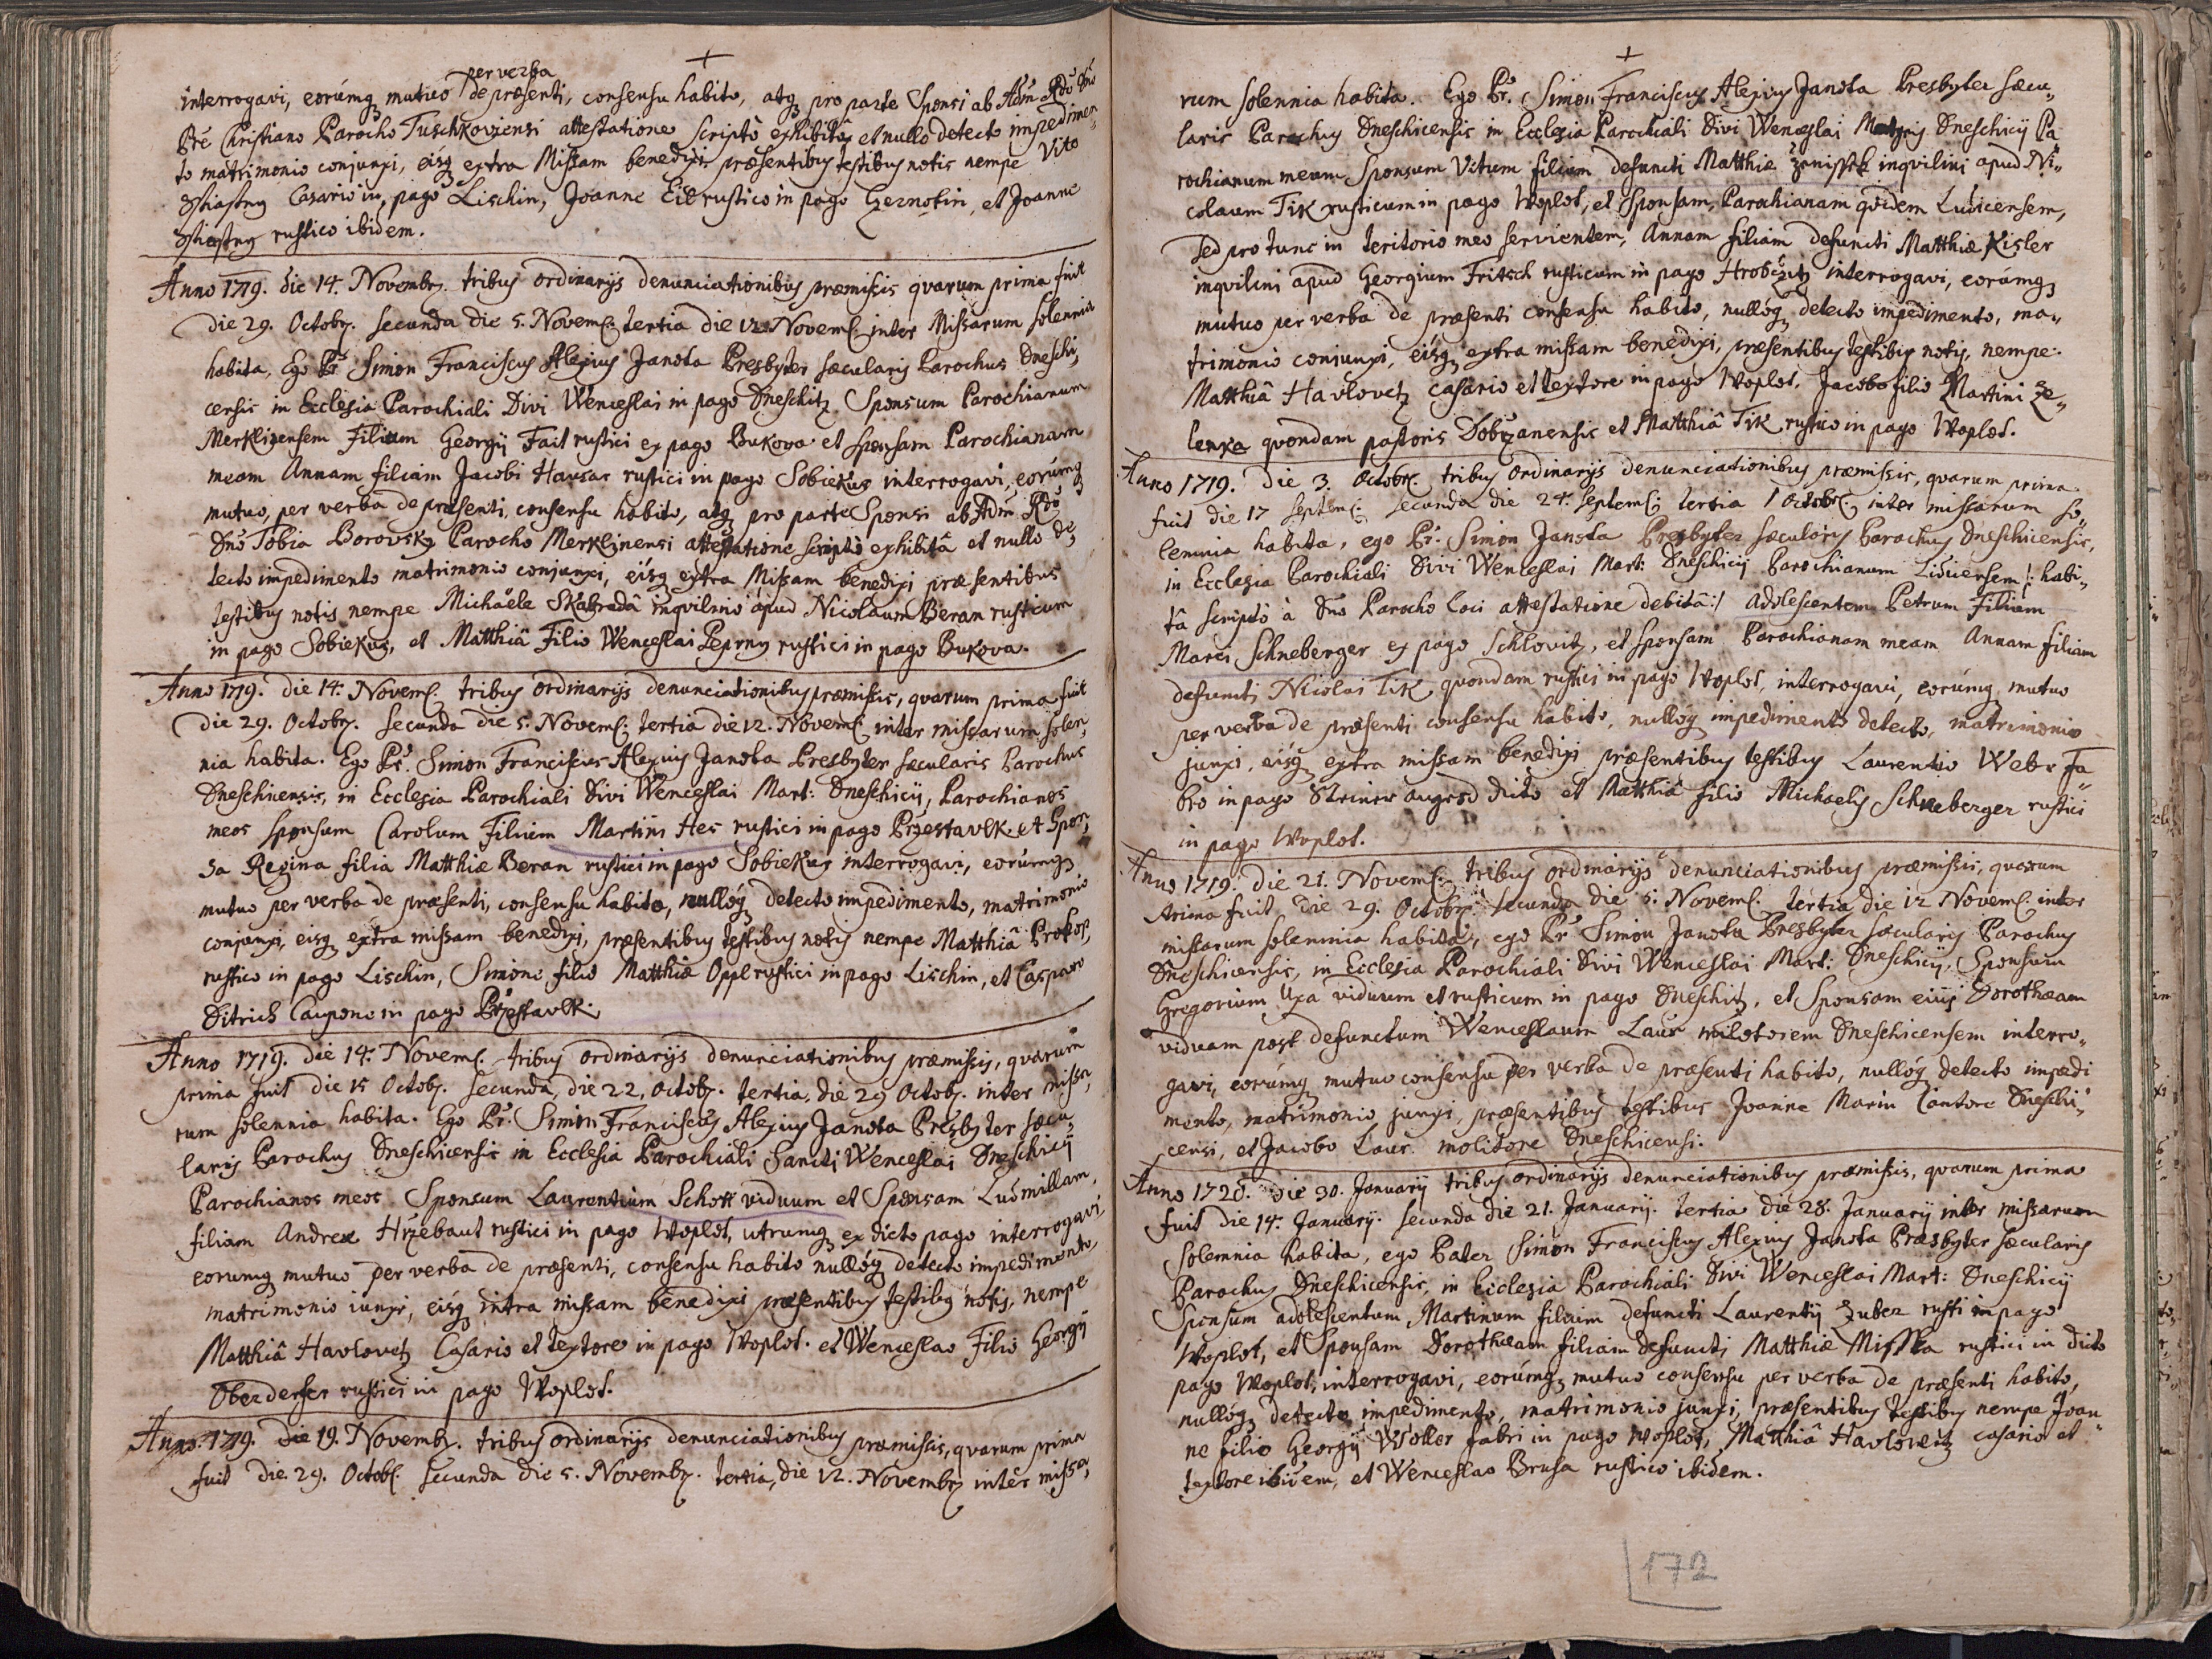 +
per verba
interrogavi, eorúmq mutuo de præsenti, consensu habito, atq pro parte Sponsi ab Adm Rdo Dno
Pre Christiano Parocho Tuschkoviensi attestatione scripto exhibita, et nullo detecto impedimen
to matrimonio conjunxi, eisq extra Missam benedixi præsentibus testibus notis nempe Vito
Sstiastny Casario in pago Lischin, Joanne Eit rustico in pago Czernotin, et Joanne
Sstiastny rustico ibidem.
Anno 1719. die 14. Novembr. tribus ordinarijs denunciationibus præmissis quarum prima fuit
die 29. Octobr. secunda die 5. Novemb. tertia die 12. Novemb. inter Missarum solennia
habita, Ego Pr Simon Franciscus Alexius Janota Presbyter sæcularis Parochus Dneschi,,
censis in Ecclesia Parochiali Divi Wenceslai in pago Dneschitz Sponsum Parochianum
Merklinensem Filium Georgij Fait rustici ex pago Bukova et sponsam Parochianam
meam Annam filiam Jacobi Hausar rustici in pago Sobiekur interrogavi, eorúmq
mutuo, per verba de præsenti, consensu habito, atq pro parte Sponsi ab Adm Rdo
Dno Tobia Borovsky Parocho Merklinensi attestatione scripto exhibitâ et nullo de,,
tecto impedimento matrimonio conjunxi, eisq extra Missam benedixi præsentibus
testibus notis nempe Michaële Skabradâ inqvilino apud Nicolaum Beran rusticum
in pago Sobiekur, et Matthiâ Filio Wenceslai Peprny rustici in pago Bukova.
Anno 1719. die 14. Novemb. tribus ordinarijs denunciationibus præmissis, quarum prima fuit
die 29. Octobr. secunda die 5. Novemb. tertia die 12. Novemb. inter missarum solen,,
nia habita. Ego Pr. Simon Franciscus Alexius Janota Presbyter sæcularis Parochus
Dneschicensis, in Ecclesia Parochiali Divi Wenceslai Mart: Dneschicij, Parochianos
meos sponsum Carolum Filium Martini Hes rustici in pago Przestavlk et Spon,,
sa Regina filia Matthiæ Beran rustici in pago Sobiekur interrogavi, eorúmq
mutuo per verba de præsenti, consensu habito, nullóq detecto impedimento, matrimonio
conjunxi, eisq extra missam benedixi, præsentibus testibus notis nempe Matthiâ Prokop,
rustico in pago Lischin, Simone filio Matthiæ Oppl rustici in pago Lischin, et Casparo
Ditrich Caupone in pago Przestavlk.
Anno 1719. die 14. Novemb. tribus ordinarijs denunciationibus præmissis, quarum
prima fuit die 15 Octob. secunda, die 22, Octob. tertia, die 29 Octob. inter missa,,
rum solennia habita. Ego Pr. Simon Franciscus Alexius Janota Presbyter sæcu,,
laris Parochus Dneschicensis in Ecclesia Parochiali Sancti Wenceslai Dneschicij
Parochianos meos Sponsum Laurentium Schott viduum et Sponsam Ludmillam,
filiam Andreæ Hrzebaut rustici in pago Woplot, utrumq ex dicto pago interrogavi,
eorumq mutuo per verba de præsenti, consensu habito nullóq detecto impedimento,
matrimonio iunxi, eisq intra missam benedixi præsentibus testibus notis, nempe
Matthiâ Havlovetz Casario et textore in pago Woplot. et Wenceslao Filio Georgij
Oberderfer rustici in pago Woplot.
Anno. 1719. die 19. Novembr. tribus ordinarijs denunciationibus præmissis, quarum prima
fuit die 29. Octob. secunda die 5. Novembr. tertia, die 12. Novembr inter missa,,
+
rum solennia habita. Ego Pr. Simon Franciscus Alexius Janota Presbyter sæcu,,
laris Parochus Dneschicensis in Ecclesia Parochiali Divi Wenceslai Martyris Dneschicij Pa
rochianum meum Sponsum Vitum filium defuncti Matthiæ inqvilini apud Ni,,
colaum Tik rusticum in pago Woplot, et Sponsam, Parochianam quidem Luticensem,
sed pro tunc in teritorio meo servientem, Annam filiam defuncti Matthiæ Kisler
inqvilini apud Georgium Fritsch rusticum in pago Hrobczitz interrogavi, eorúmq
mutuo per verba de præsenti consensu habito, nullóq detecto impedimento, ma,,
trimonio conjunxi, eisq extra missam benedixi, præsentibus testibus notis, nempe
Matthiâ Havlovetz casario et textore in pago Woplot. Jacobo filio Martini Ze,,
lenka quondam pastoris Dobrzanensis et Matthiâ Tik rustico in pago Woplot.
Anno 1719. Die 3. Octobr. tribus ordinarijs denunciationibus præmissis, quarum prima
fuit die 17 Septemb. secunda die 24. Septemb. tertia 1 Octobr. inter missarum so,,
lennia habita, ego Pr. Simon Janota Presbyter sæcularis Parochus Dneschicensis,
in Ecclesia Parochiali Divi Wenceslai Mart: Dneschicij Parochianum Liticensem /: habi,,
tâ scripto à Dno Parocho loci attestatione debitâ :/ adolescentem Petrum Filium
Marci Schneberger ex pago Schlovitz, et sponsam Parochianam meam Annam filiam
defuncti Nicolai Tik quondam rustici in pago Woplot, interrogavi, eorúmq mutuo
per verba de præsenti consensu habito, nullóq impedimento detecto, matrimonio
junxi, eisq extra missam benedixi præsentibus testibus Laurentio Weber Fa,,
bro in pago Steiner augezd dicto et Matthiâ filio Michaelis Schneberger rustici
in pago Woplot.
Anno 1719. Die 21. Novemb. tribus ordinarijs denunciationibus præmissis, quarum
prima fuit die 29. Octobr. secunda die 5. Novemb. tertia die 12 Novemb. inter
missarum solennia habita, ego Pr Simon Janota Presbyter sæcularis Parochus
Dneschicensis, in Ecclesia Parochiali Divi Wenceslai Mart: Dneschicij, Sponsum
Gregorium Uxa viduum et rusticum in pago Dneschitz, et Sponsam eius Dorotheam
viduam post defunctum Wenceslaum Laur Dneschicensem interro,,
gavi, eorúmq mutuo consensu per verba de præsenti habito, nullóq detecto impedi
mento, matrimonio junxi, præsentibus testibus Joanne Marin Cantore Dneschi,,
censi, et Jacobo Laur molitore Dneschicensi.
Anno 1720. Die 30. Januarij tribus ordinarijs denunciationibus præmissis, quarum prima
fuit die 14. Januarij. secunda die 21. Januarij. tertia die 28. Januarij inter missarum
solemnia habita, ego Pater Simon Franciscus Alexius Janota Præsbyter sæcularis
Parochus Dneschicensis, in Ecclesia Parochiali Divi Wenceslai Mart: Dneschicij
Sponsum adolescentum Martinum filium defuncti Laurentij Zuber rusti in pago
Woplot, et Sponsam Dorotheam filiam defuncti Matthiæ Misska rustici in dicto
pago Woplot, interrogavi, eorúmq mutuo consensu per verba de præsenti habito,
nullóq detecto impedimento, matrimonio junxi, præsentibus testibus nempe Joan,,
ne filio Georgij Woller fabri in pago Woplot, Matthiâ Havlovetz casario et
textore ibidem, et Wenceslao Brusa rustico ibidem.
172